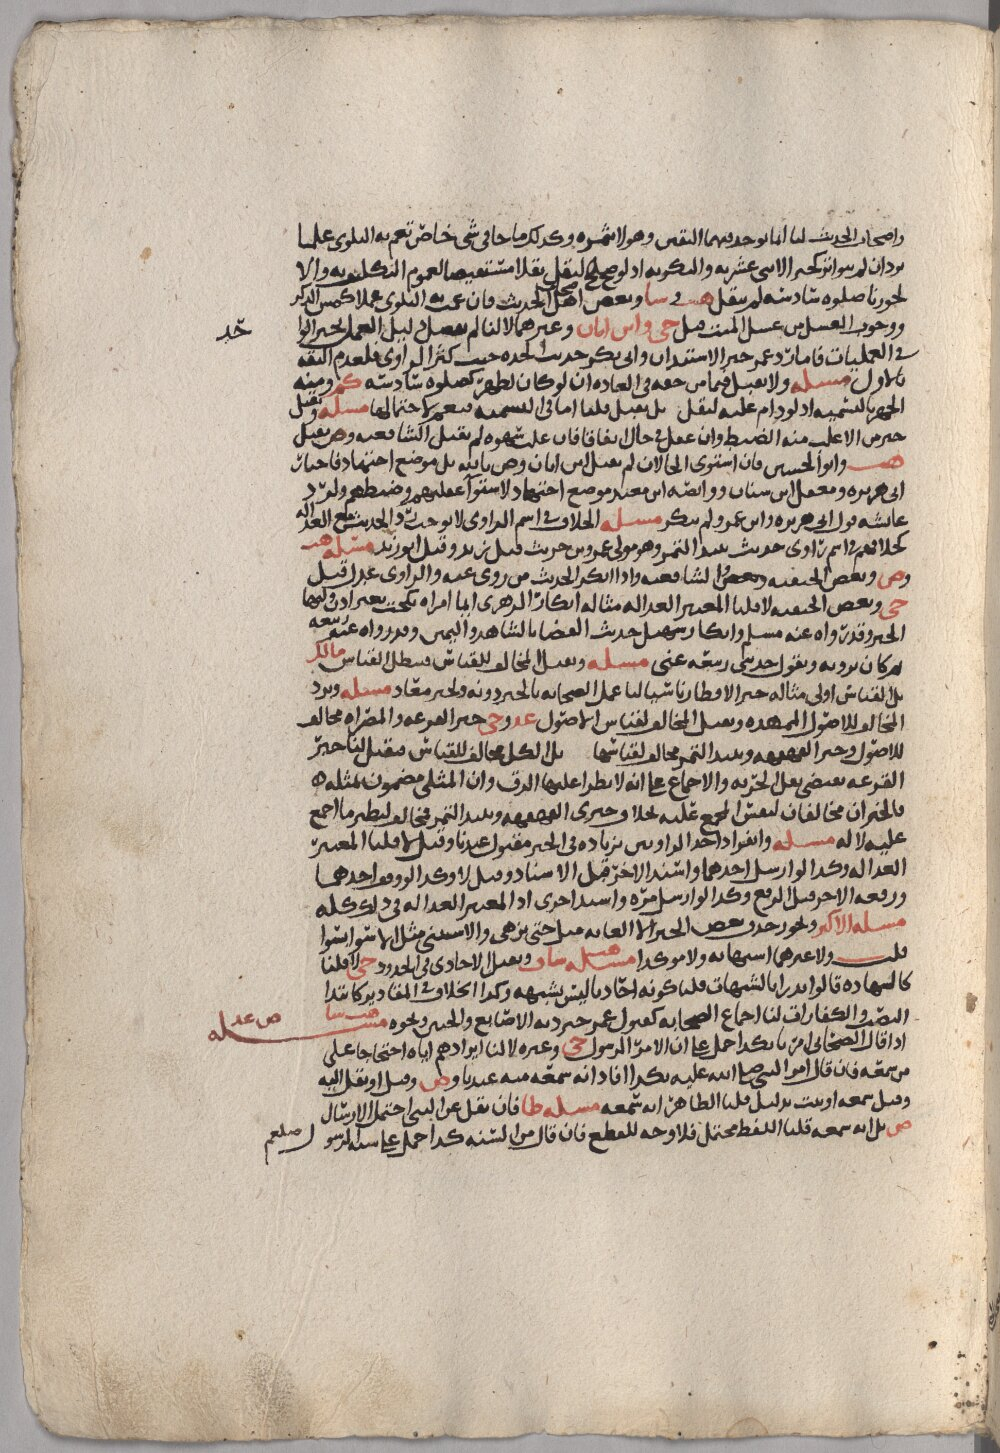 واصحاب الحديث لنا انما يوجد فيهما اليقين وهو لا ثمره وكذلك ما جا في شي خاص تعم به البلوى علما
يرد ان لم يتواتر كخبر الاثني عشريه والبكريه اذ لو صح لنقل نقلا مستفيضا لعموم التكليف به والا
لجوزنا صلوه سادسه لم تنقل وبعض اهل الحديث فان عمت به البلوى عملا كمس الذكر
ووجوب الغسل من غسل الميت قبل حي وابن ابان وغيرهما لا لنا لم يفصل دليل العمل بخبر الواحد
في العمليات فاما رد عمر خبر الاستيذان وابي بكر حديث الجده حيث كثرا الراوي فلعدم الثقه
بالاول مسله ولا يقبل فيما من حقه في العاده ان لو كان لظهر كصلوه سادسه ومنه
الجهر بالتسميه اذ لو دام عليه لنقل بل يقبل قلنا اما في التسميه فنعم لاحتمالها مسله ويقبل
خبر من الاغلب منه الضبط وان غفل في حال اتفاقا فان غلب سهوه لم يقبل الشافعيه وص يقبل
وابو الحسين فان استوى الحالان لم يقبل ابن ابان وص يابيه بل موضع اجتهاد فاخبار
ابي هريره ومعقل ابن سنان ووابصه ابن معبد موضع اجتهاد لاستوا غفلتهم وضبطهم ولرد
عائشه قول ابي هريره وابن عمر ولم ينكر مسله الخلاف في اسم الراوي لا يوجب رد الحديث مع العداله
كخلافهم في اسم راوي حديث نبيذ التمر وهو مولى عمرو بن حريث قيل زيد وقيل ابو زيد مسله
وص وبعض الحنفيه وبعض الشافعيه واذا انكر الحديث من روي عنه والراوي عدل قبل
حي وبعض الحنفيه لا قلنا المعتبر العداله مثاله انكار الزهري ايما امراه نكحت بغير اذن وليها
الخبر وقد رواه عنه مسلم وانكار سهيل حديث القضا بالشاهد واليمين وقد رواه عنه ربيعه
ثم كان يرويه ويقول حدثني ربيعه عني مسله ويقبل المخالف للقياس فيبطل القياس مالك
بل القياس اولى مثاله خبر الافطار ناسيا لنا عمل الصحابه بالخبر دونه ولخبر معاذ مسله ويرد
المخالف للاصول الممهده ويقبل المخالف لقياس الاصول عد وحي خبر القرعه والمصراه مخالف
للاصول وخبر القهقهه ونبيذ التمر مخالف لقياسها بل الكل مخالف للقياس فيقبل لنا خبر
القرعه يقتضي نقل الحريه والاجماع على انه لا يطرا عليها الرق وان المثلي مضمون بمثله
فالخبران مخالفان لنفس المجمع عليه بخلاف خبري القهقهه ونبيذ التمر فمخالف لنظير ما اجمع
عليه لا له مسله وانفراد احد الراويين بزياده في الخبر مقبول عندنا وقيل لا قلنا المعتبر
العداله وكذا لو ارسل احدهما واسند الاخر قبل الاسناد وقيل لا وكذا لو وقف احدهما
ورفعه الاخر قبل الرفع وكذا لو ارسل مره واسند اخرى اذ المعتبر العداله في ذلك كله
مسله الاكثر ويجوز حذف بعض الخبر الا الغايه مثل حتى تزهى والاستثنى مثل الا سوا بسوا
قلت ولا غيرهما استهانه ولا موكدا مسله ويقبل الاحادي في الحدود حي لا قلنا
كالشهاده قالوا تدرا بالشبهات قلنا كونه احاديا ليس بشبهه وكذا الخلاف في المقادير كابتدا
النصب والكفارات لنا اجماع الصحابه كقبول عمر خبر ديه الاصابع والجنين ونحوه مسله
اذا قال الصحابي امرنا بكذا حمل على ان الامر الرسول حي وغيره لا لنا ايرادهم اياه احتجاجا على
من سمعه فان قال امر النبي صلى الله عليه بكذا افاد انه سمعه منه عندنا وص وقيل او نقل اليه
وقيل سمعه او ثبت بدليل قلنا الظاهر انه سمعه مسله طا فان نقل عن النبي احتمل الارسال
ص بل انه سمعه قلنا اللفظ محتمل فلا وجه للقطع فان قال من السنه كذا حمل على سنه الرسول صلعم